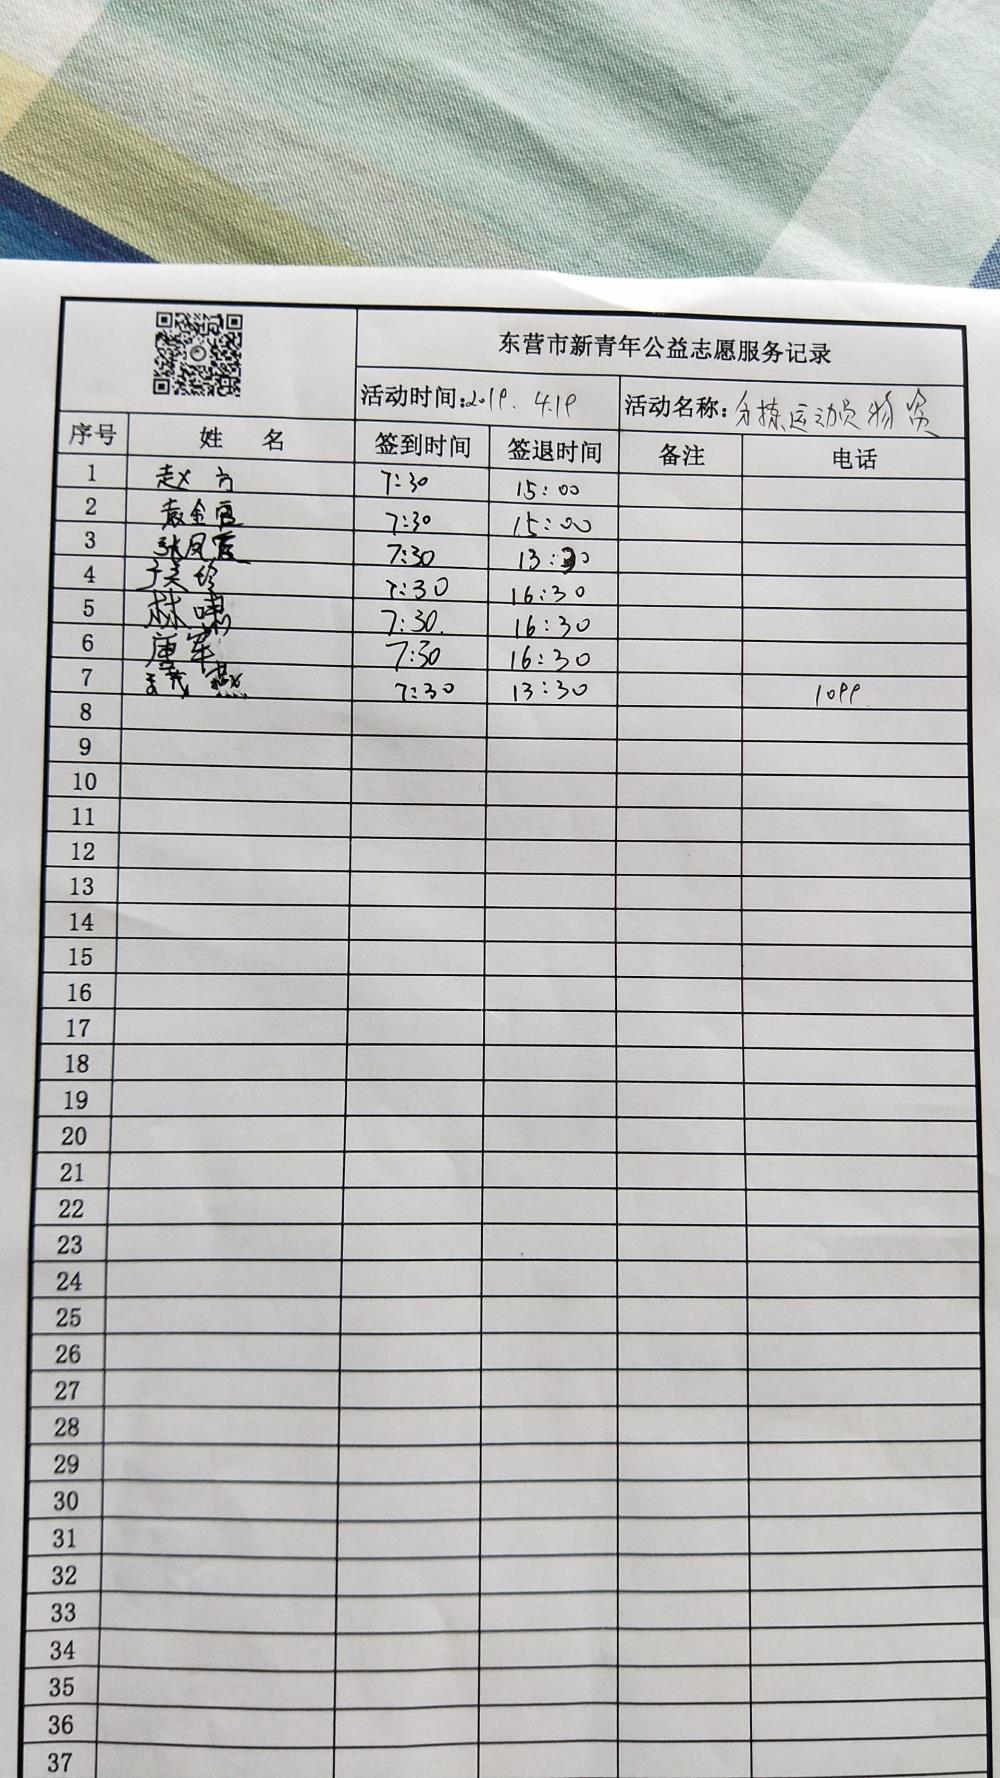 东营市新青年公益志愿服务记录
活动时间:2019.4.19 活动名称:分拣运动员物资
序号 姓 名 签到时间 签退时间 备注 电话
1 赵 方 7:30 15:00
2 袁金 7:30 15:00
3 张凤霞 7:30 13:30
4 7:30 16:30
5 林 7:30. 16:30
6 唐军 7:30 16:30
7 7:30 13:30 1099
8
9
10
11
12
13
14
15
16
17
18
19
20
21
22
23
24
25
26
27
28
29
30
31
32
33
34
35
36
37